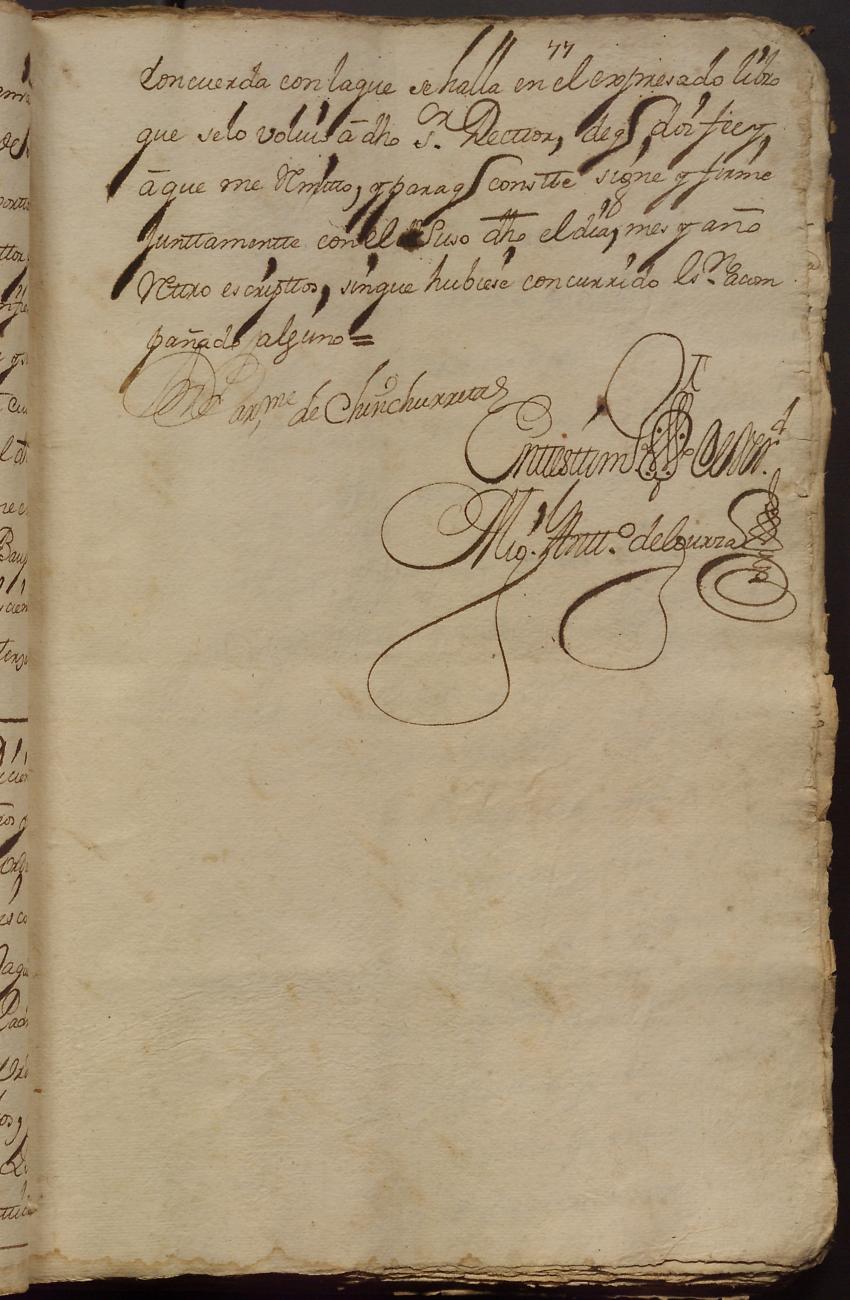 77
Concuerda con la que se halla en el expresado libro
que se lo volvi â dho s.or Recttor, de q doi fee y,
â que me Remitto, y para q constte signe y firme
Junttamentte con el Suso dho el dia, mes y año
Rettro escripttos, sin que hubiese concurrido
pañado alguno =
de Chinchurreta
En ttesttim.o de Ver.d
Mig.l Antt.o de